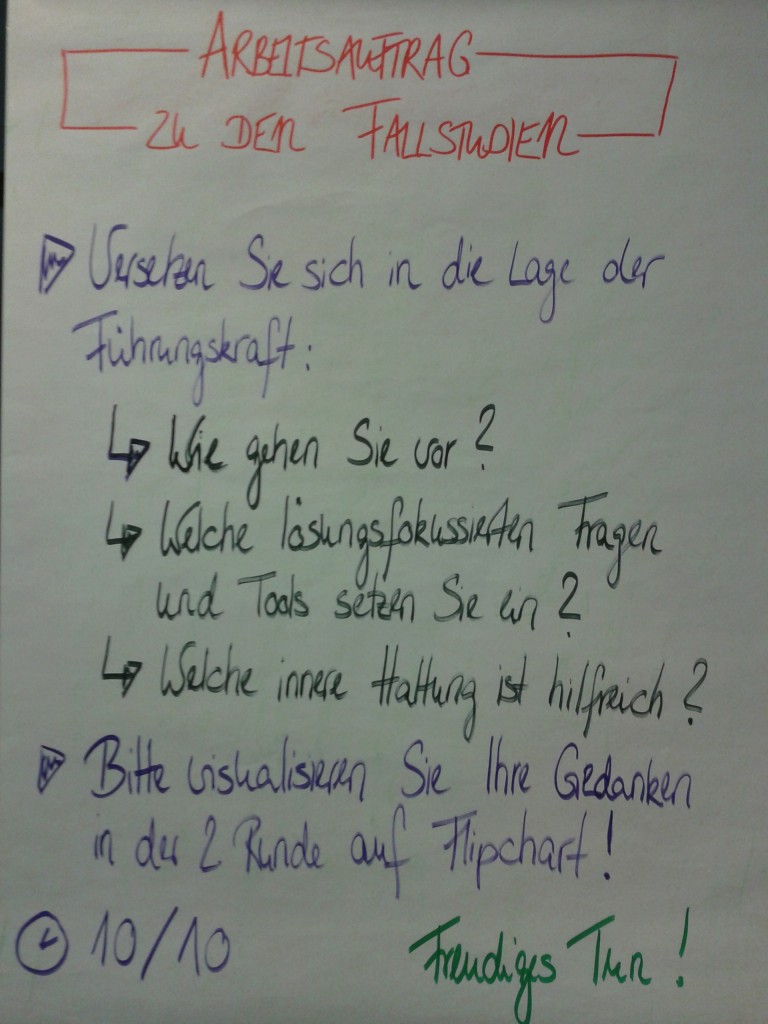 ARBEITSAUFTRAG
ZU DEN FALLSTUDIEN
Versetzen Sie sich in die Lage der
Führungskraft:
↳ Wie gehen Sie vor?
↳ Welche lösungsfokussierten Fragen
und Tools setzen Sie ein?
↳ Welche innere Haltung ist hilfreich?
Bitte visualisieren Sie Ihre Gedanken
in der 2 Runde auf Flipchart!
10/10
Freudiges Tun!